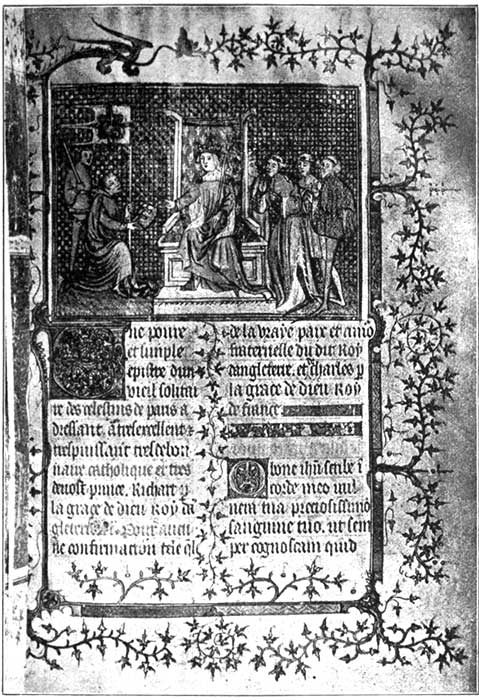 ne poure
et simple
epistre dun
vieil solitai
re des celestins de paris a
dressant. a tresexcellent ⁊
trespuissant tresdebon
naire catholique et tres
devost prince. Richart p
la grace de dieu Roy da
gleterre Pour aucu
ne confirmacion tele ql
⁊ de la vraye paix et amo
fraternelle du dit Roy
dangleterre. et charles p
la grace de dieu Roy
de france
O bone ihu scribe i
corde meo vul
nera tua preciosissimo
sanguine tuo. ut sem
per cognoscam quid